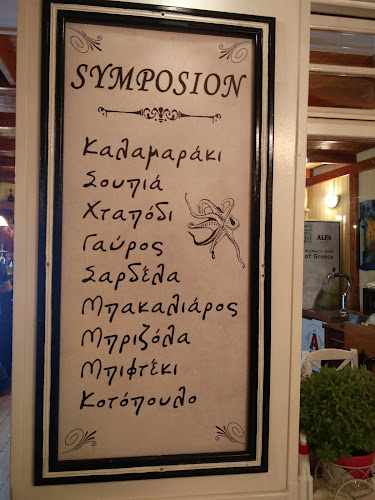 SYMPOSION
Καλαμαράκι
Σουπιά
Χταπόδι
Γαύρος
Σαρδέλα
Μπακαλιάρος
Μπριζόλα
Μπιφτέκι
Κοτόπουλο
ALFA
of Greece